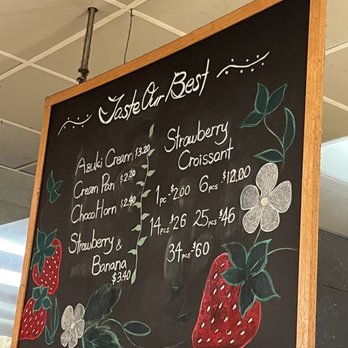 Taste Our Best
Azuki Cream $3.20
Cream Pan $2.20
Choco Horn $2.40
Strawberry &
Banana
$3.40
Strawberry
Croissant
1pc-$2.00 6pcs-$12.00
14pcs-$26 25pcs-$46
34pcs-$60